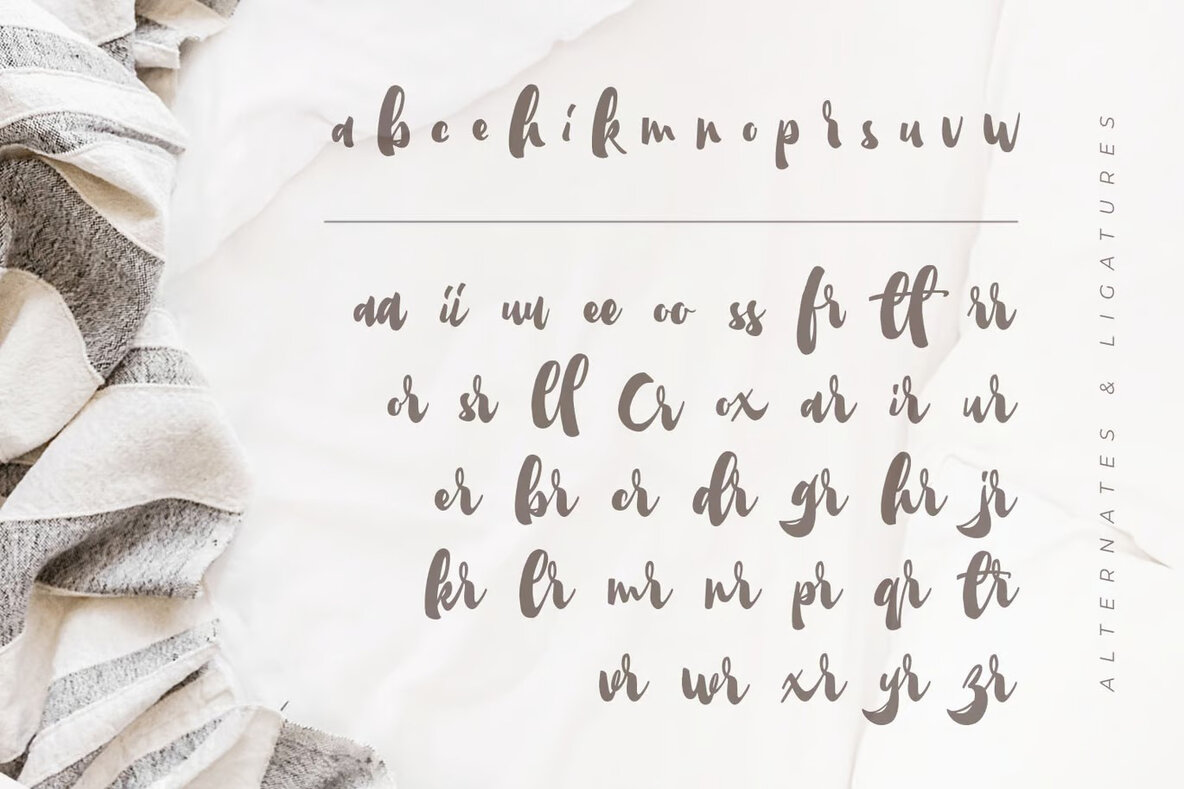 a b c e h i k m n o p r s u v w
aa ii uu ee oo ss fr tt rr
or sr ll Cr ox ar ir ur
er br cr dr gr hr jr
kr lr mr nr pr qr tr
vr wr xr yr zr
ALTERNATES & LIGATURES